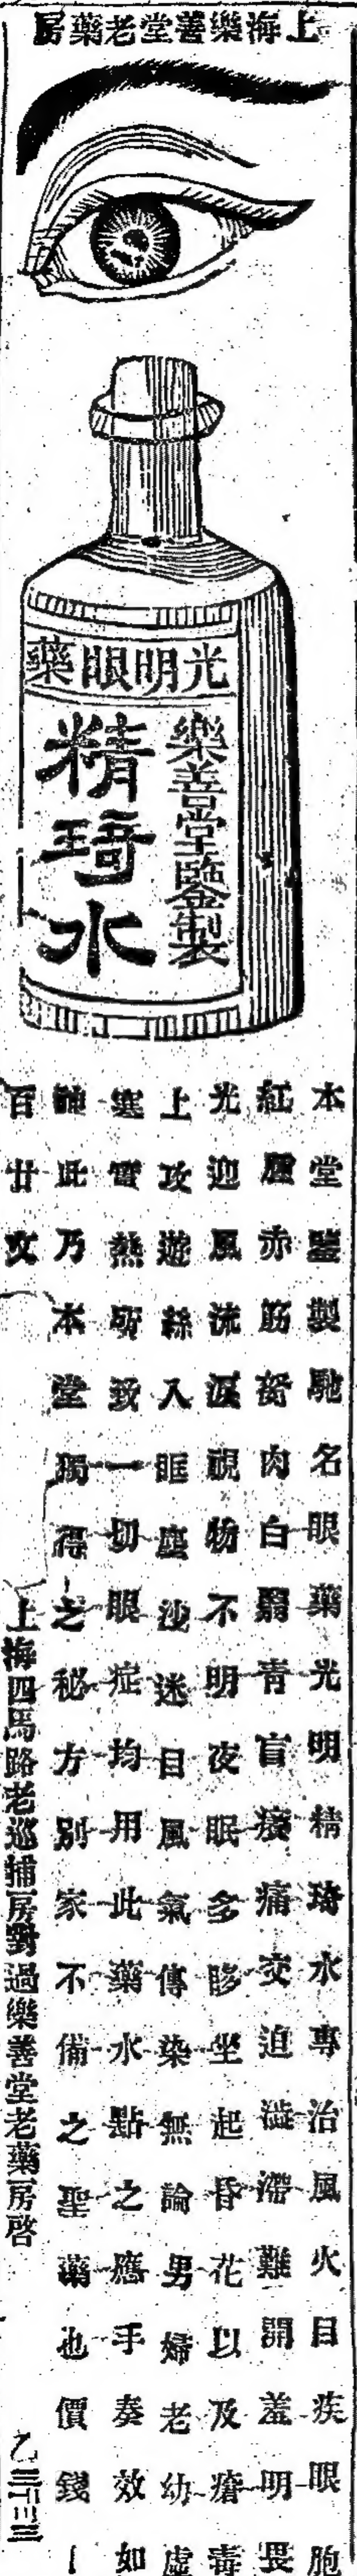 上海樂善堂老藥房
光明眼藥
樂善堂監製
精琦水
本堂監製馳名眼藥光明精琦水專治風火目疾眼胞
紅腫赤筋努肉白翳青盲癢痛交迫澁滯難開羞明畏
光迎風流淚視物不明夜眠多眵坐起昏花以及瘡毒
上攻遊絲入眶塵沙迷目風氣傳染無論男婦老幼虛
寒實熱所致一切眼症均用此藥水點之應手奏效如
神此乃本堂獨得之秘方別家不備之聖藥也價錢一
百廿文
上海四馬路老巡捕房對過樂善堂老藥房啓